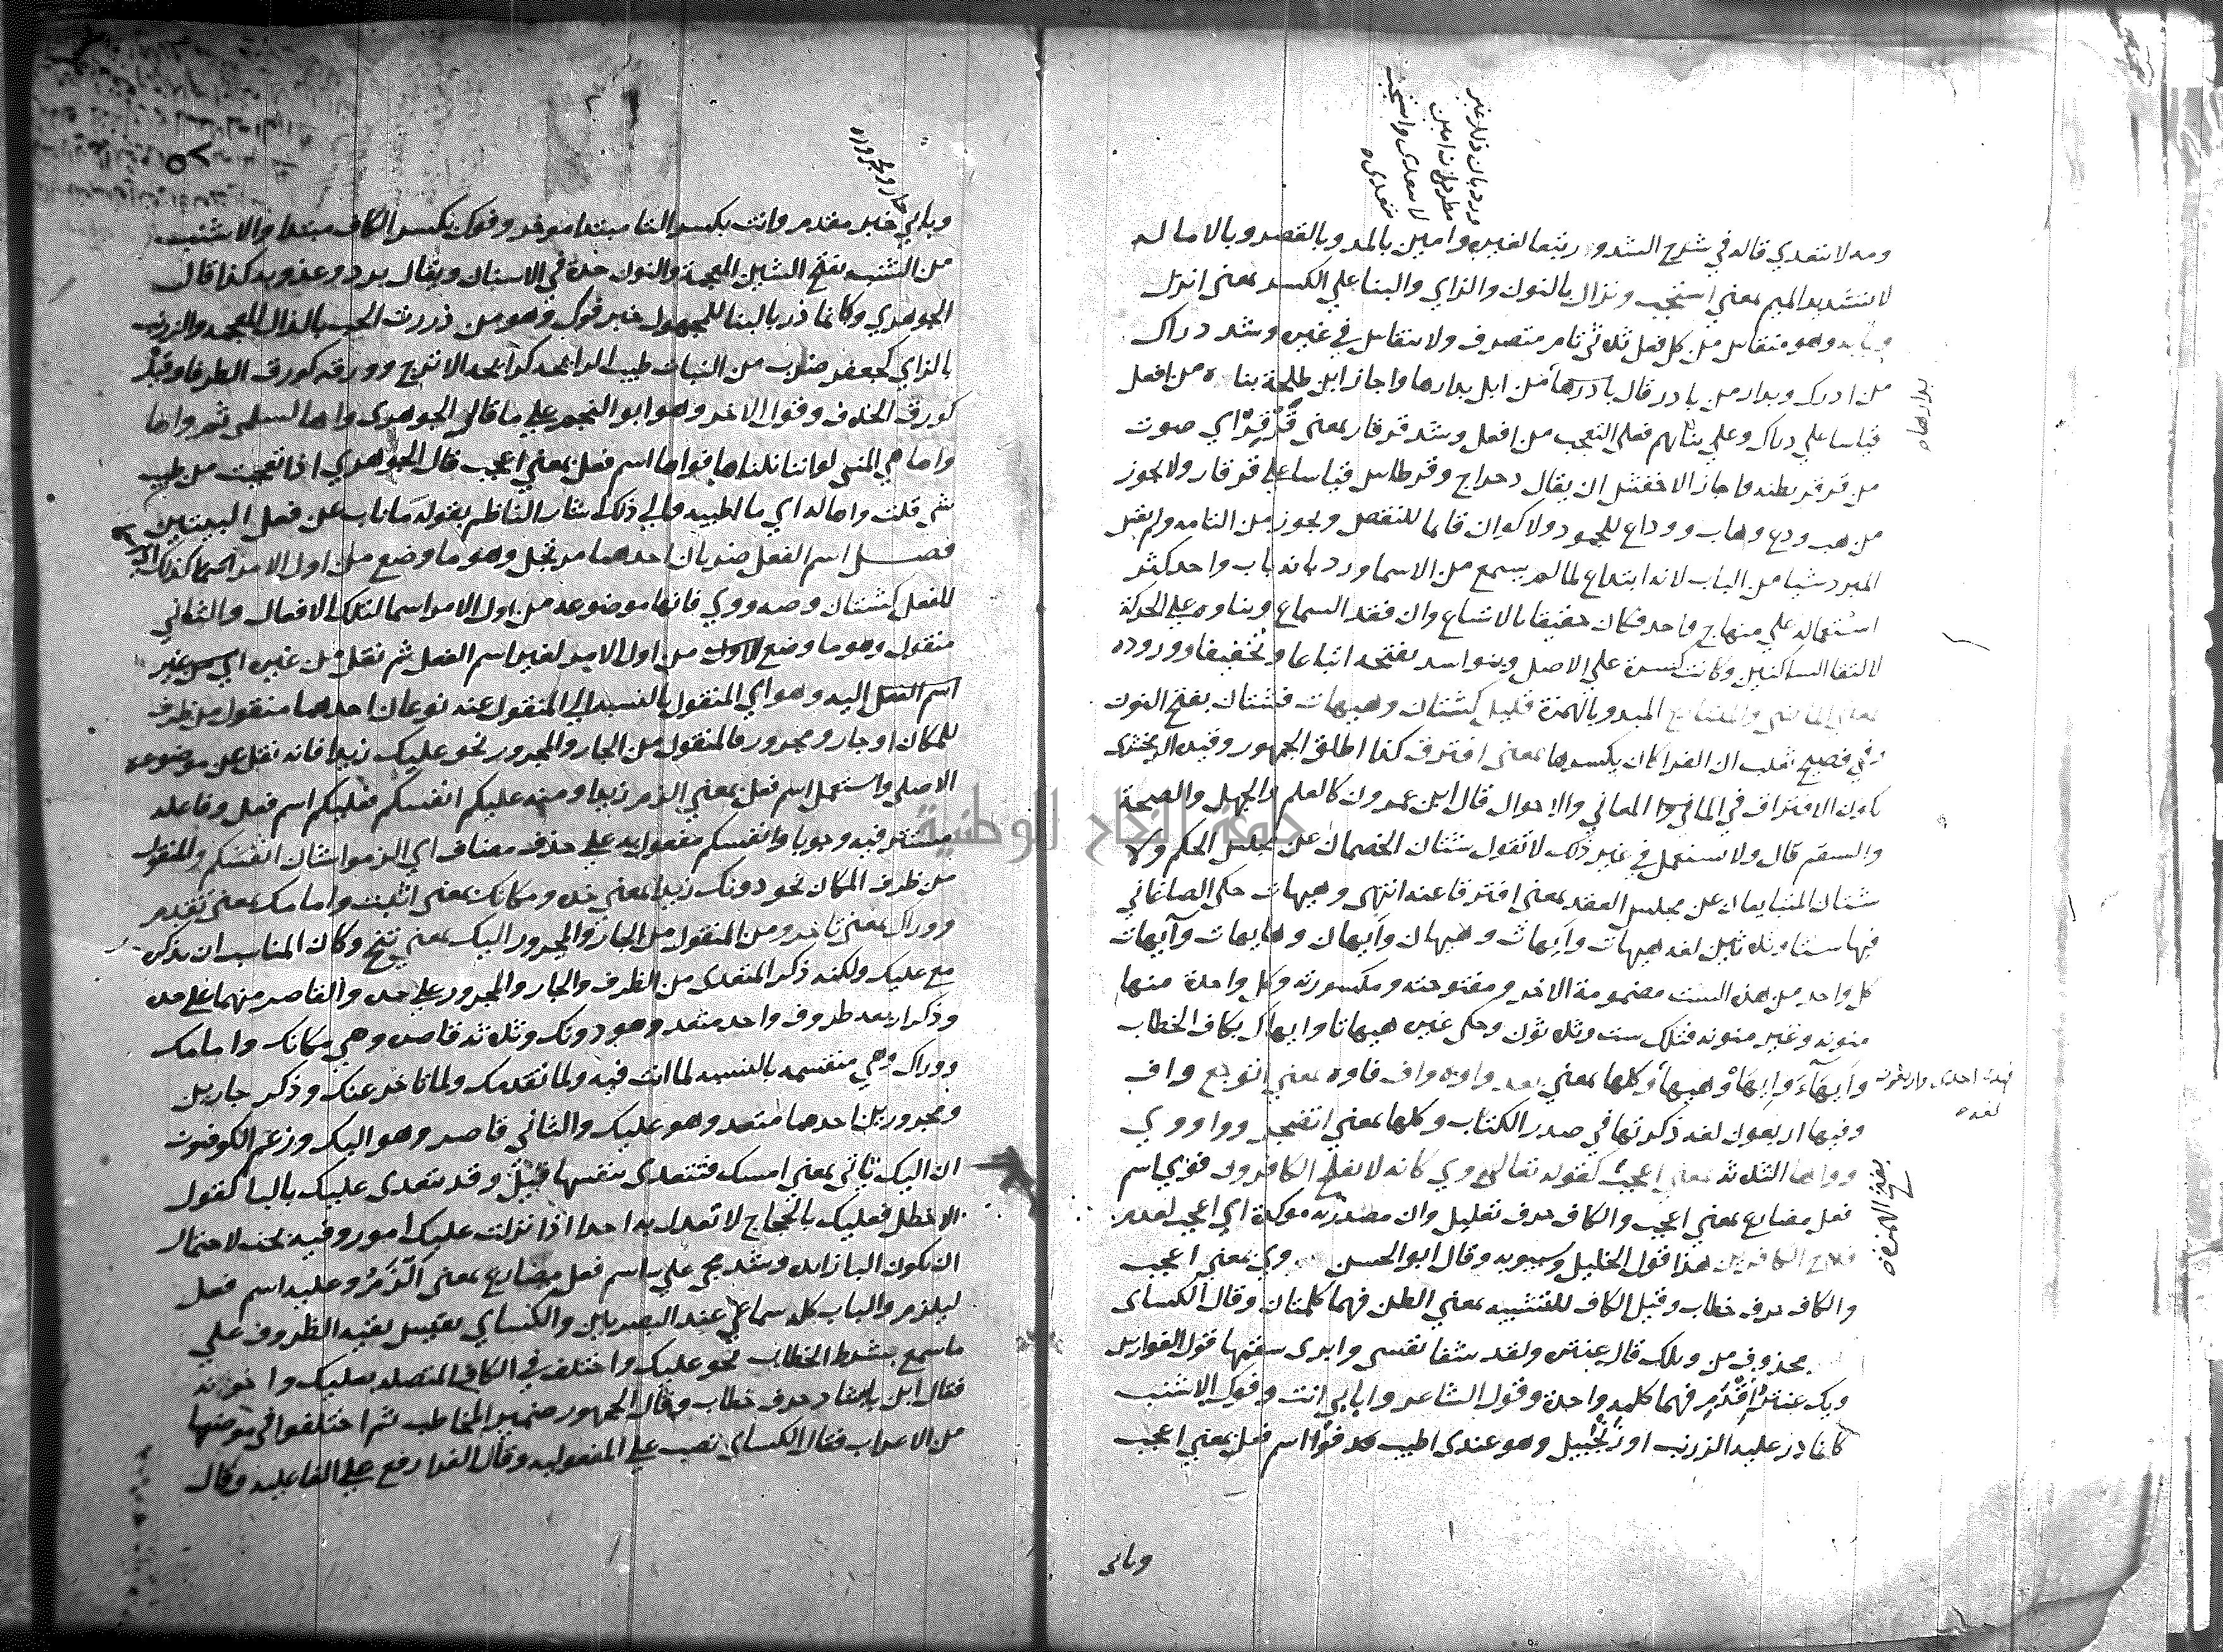 ومه لا تتعدي قاله في شرح الشذور ربما لغيره وامين بالمد وبالقصر وبالاماله
لا بتشديد الميم بمعني استجب ونزال بالنون والزاي والبنا علي الكسر بمعني انزل
وبابه وهو منقاس من كل فعل ثلاثي تام متصرف ولا ينقاس في غيره وشد دراك
من ادرك وبدار من بادر قال بادرها من ابل بدارها واجاز ابن طلحة بناه من افعل
قياسا علي دراك وعلي بنائهم فعلي التعجب من افعل وشد قرقار بمعني قرقر اي صوت
من قرقر بطنه واجاز الاخفش ان يقال دحراج وقرطاس قياسا علي قرقار ولا يجوز
من هب ودع وهاب ووداع للجمود ولا كوان قايما للنقص ويجوز من التامه ولم يقس
المبرد شيا من الباب لانه ابتداع لما لم يسمع من الاسما ورد بانه باب واحد كثر
استعماله علي منهاج واحد فكان حقيقا بالاتساع وان فقد السماع وبناوه علي الحركة
لالتقا الساكنين وكانت كسرة علي الاصل وبنو اسد بفتحه اتباعا وتخفيفا ووروده
بمعني الماضي والمضارع المبدو بالهمزة قليل كشتان وهيهات فشتان بفتح النون
وفي فصيح ثعلب ان الفرا كان يكسرها بمعني افترق كذا اطلق الجمهور وقيده الزمخشري
بكون الافتراق في المعاني والاحوال قال ابن عمرون كالعلم والجهل والصحة
والسقم قال ولا يستعمل في غير ذلك لا تقول شتان الخصمان عن مجلس الحكم ولا
شتان المتبايعان عن مجلس العقد بمعني افترقا عنه انتهي وهيهات حكي الصاغاني
فيها ستا وثلاثين لغه هيهات وايهات وهيهان وايهان وهايهات وآيهات
كل واحد من هذه الست مضمومة الاخر ومفتوحته ومكسورته وكل واحدة منها
منونه وغير منونه فتلك ست وثلاثون وحكي غيره هيهاتا وايهاك بكاف الخطاب
وايهاء وايها وهيها وكلها بمعني بعد واوه واف فاوه بمعني اتوجع واف
وفيها اربعون لغه ذكرتها في صدر الكتاب وكلها بمعني اتضجر ووا ووي
وواها الثلاثه بمعني اعجب كقوله تعالي وي كانه لا يفلح الكافرون فوي اسم
فعل مضارع بمعني اعجب والكاف حرف تعليل وان مصدريه موكدة اي اعجب لعدم
فلاح الكافرين هذا قول الخليل وسيبويه وقال ابو الحسن وي بمعني اعجب
والكاف حرف خطاب وقيل الكاف للتشبيه بمعني الظن فهما كلمتان وقال الكساي
محذوف من ويلك قال عنتر ولقد شفا نفسي وابرى سقمها قول الفوارس
ويك عنتر اقدم فهما كلمه واحدة وقول الشاعر وا بابي انت وفوك الاشنب
كانما ذر عليه الزرنب او زنجبيل وهو عندي اطيب فوا اسم فعل بمعني اعجب
وبابي
بدارهاه
لغه
بفتح الهمزة
جار ومجروره
وبابي خبر مقدم وانت بكسر التا مبتدا موخر وفوك بكسر الكاف مبتدا والاشنب
من الشنب بفتح الشين المعجمة والنون حدة في الاسنان ويقال برد وعذوبه كذا قال
الجوهري وكانما ذر بالبنا للمجهول خبر فوك وهو من ذررت الحب بالذال المعجمه والزرنب
بالزاي كجعفر ضرب من النبات طيب الرائحه كرائحة الاترج وورقه كورق الطرفا وقيل
كورق الخلاف وقوله الاخر وهو ابو النجم علي ما قال الجوهري واها لسلمى ثم واها
واها هي المني لو اننا نلناها فواها اسم فعل بمعني اعجب قال الجوهري اذا تعجبت من طيب
شي قلت واها له اي ما اطيبه والي ذلك اشار الناظم بقوله ما ناب عن فعل البيتين
فصل اسم الفعل ضربان احدهما مرتجل وهو ما وضع من اول الامر كذلك
للفعل كشتان وصه ووي فانها موضوعه من اول الامر اسما لتلك الافعال والثاني
منقول وهو ما وضع الاول من اول الامر لغير اسم الفعل ثم نقل من غيره اي من غير
اسم الفعل اليه وهو اي المنقول بالنسبه الي المنقول عنه نوعان احدهما منقول من ظرف
للمكان او جار ومجرور فالمنقول من الجار والمجرور نحو عليك زيدا فانه نقل عن موضوعه
الاصلي واستعمل اسم فعل بمعني الزم زيدا ومنه عليكم انفسكم فعليكم اسم فعل وفاعله
مستتر فيه وجوبا وانفسكم مفعول به علي حذف مضاف اي الزموا شان انفسكم والمنقول
من ظرف المكان نحو دونك زيدا بمعني خذه ومكانك بمعني اثبت وامامك بمعني تقدم
ووراك بمعني تاخر ومن المنقول من الجار والمجرور اليك بمعني تنح وكان المناسب ان يذكره
مع عليك ولكنه ذكر المتعدي من الظرف والجار والمجرور علي حده والقاصر منهما علي حده
وذكر اربعه ظروف واحد متعد وهو دونك وثلاثه قاصره وهي مكانك وامامك
ووراك وهي منقسمه بالنسبه لما انت فيه ولما تقدمك ولما تاخر عنك وذكر جارين
ومجرورين احدهما متعد وهو عليك والثاني قاصر وهو اليك وزعم الكوفيون
ان اليك تاتي بمعني امسك فتتعدى بنفسها قيل وقد تتعدى عليك بالبا كقول
الاخطل فعليك بالحجاج لا تعدل به احدا اذا نزلت عليك امور وفيه بحث لاحتمال
ان يكون البا زايده وشد مجي علي اسم فعل مضارع بمعني الزم وعليه اسم فعل
ليلزم والباب كله سماعي عند البصريين والكساي يقيس بقيه الظروف علي
ما سمع بشرط الخطاب نحو عليك واختلف في الكاف المتصله بعليك واخواته
فقال ابن بابشاذ حرف خطاب وقال الجمهور ضمير المخاطب ثم اختلفوا في موضعها
من الاعراب فقال الكساي نصب علي المفعوليه وقال الفرا رفع علي الفاعليه وقال